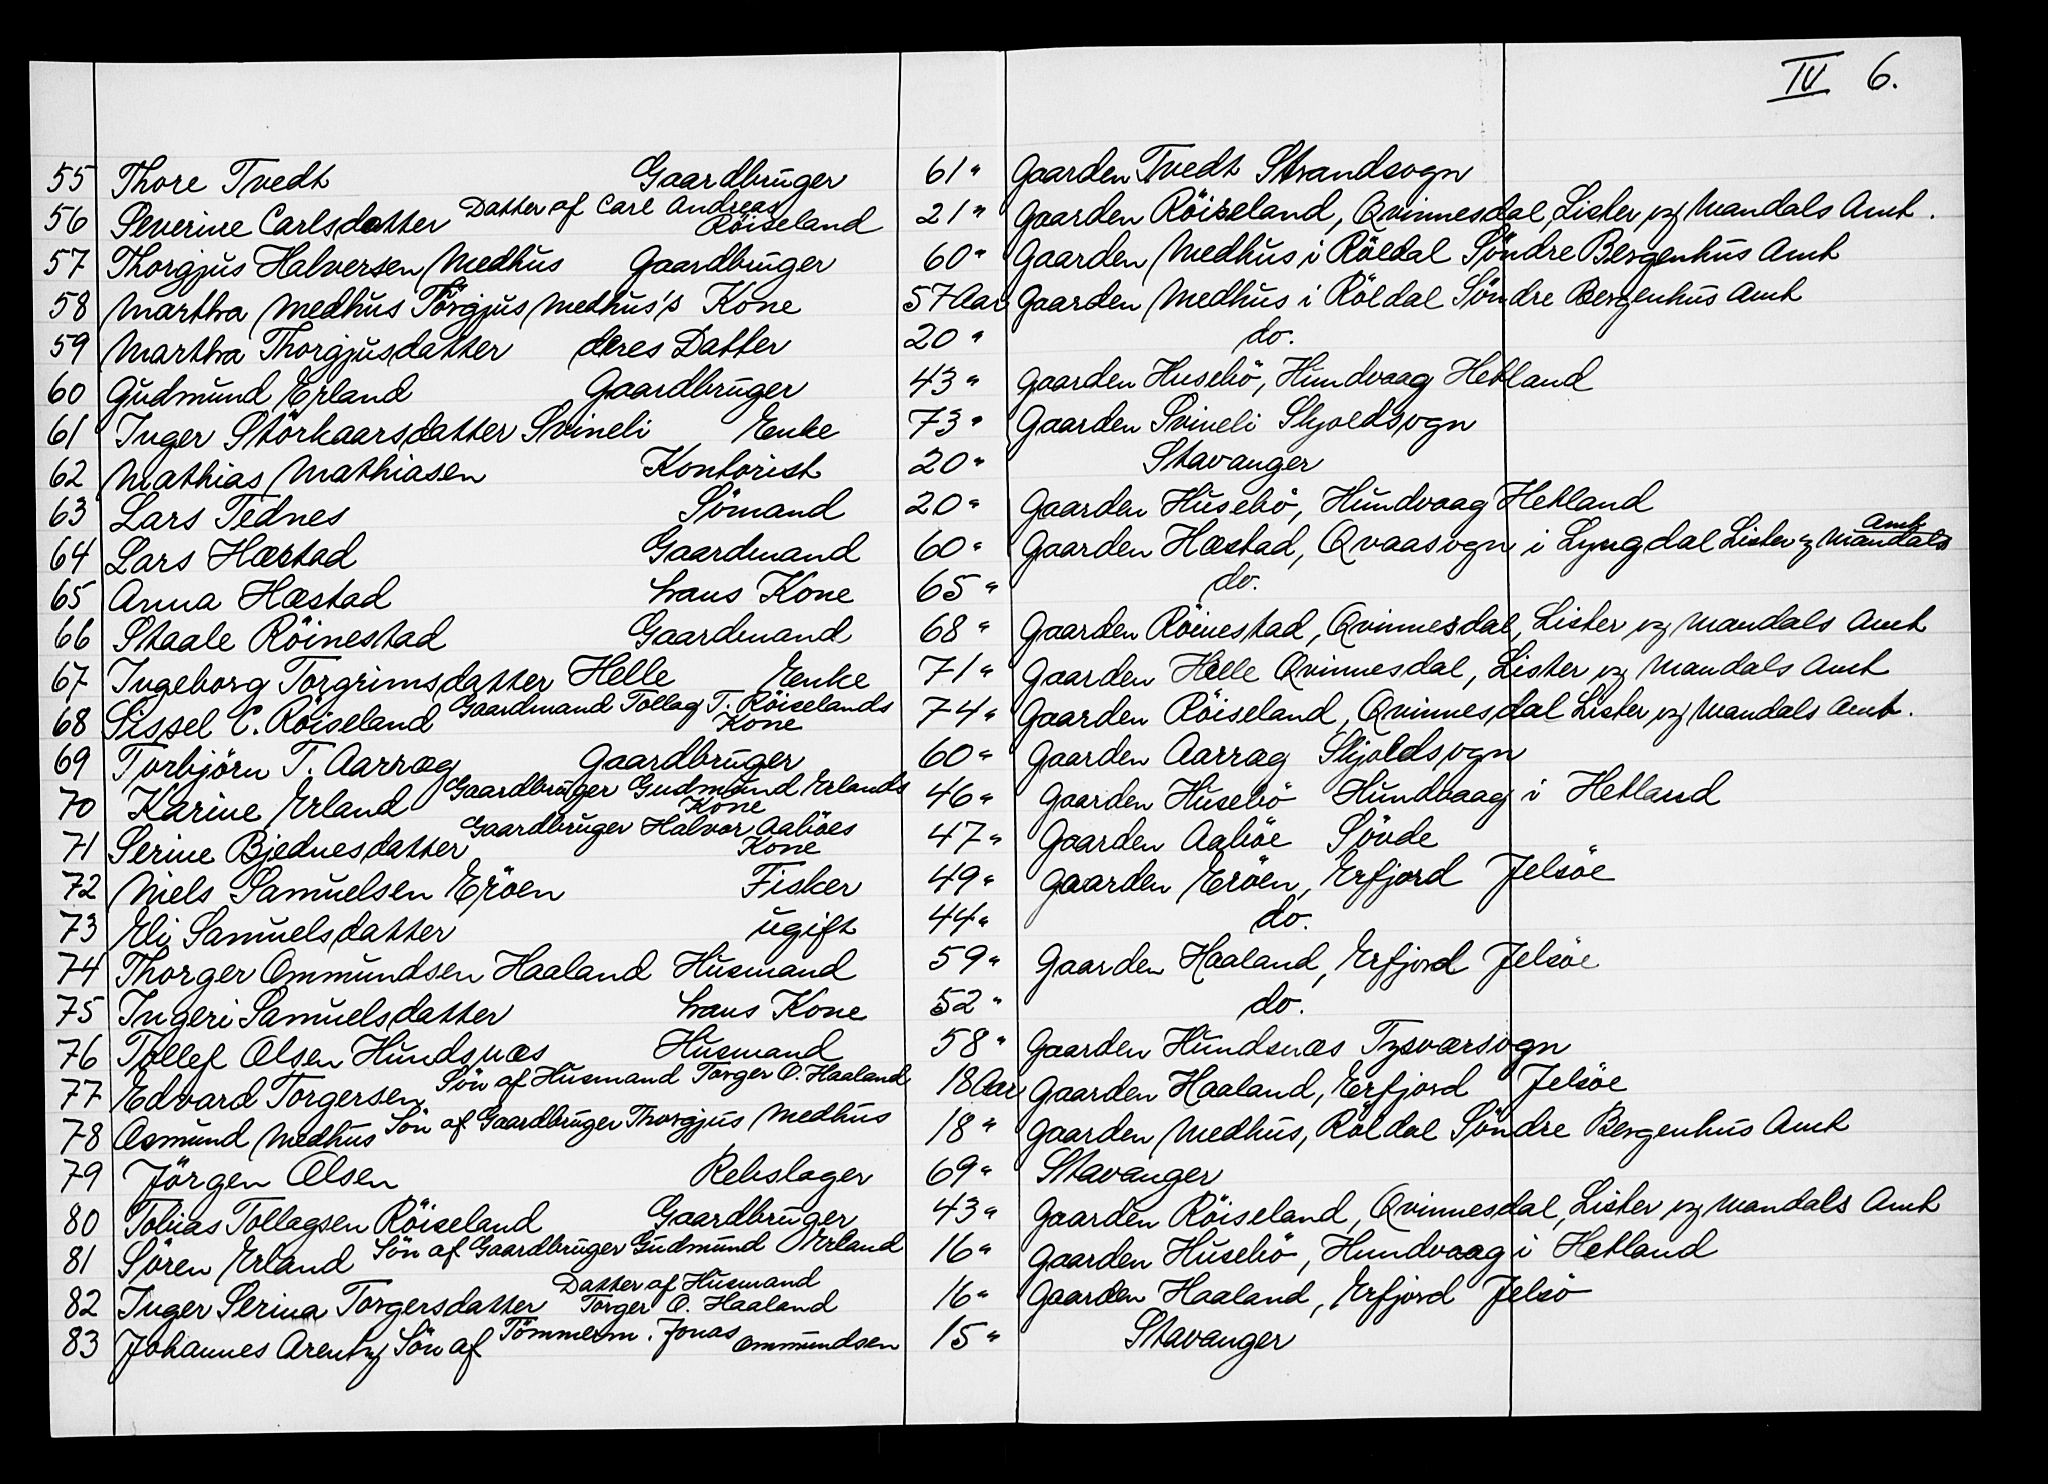 IV 6.
55 Thore Tvedt Gaardbruger 61 " Gaarden Tvedt Strandsogn
56 Severine Carlsdatter Datter af Carl Andreas Röiseland 21 " Gaarden Röiseland, Qvinnesdal, Lister og Mandals Amt.
57 Thorgjus Halversen Medhus Gaardbruger 60 " Gaarden Medhus i Röldal Söndre Bergenhus Amt
58 Martha Medhus Törgjus Medhus's Kone 57 Aar Gaarden Medhus i Röldal Söndre Bergenhus Amt
59 Martha Thorgjusdatter deres Datter 20 " do.
60 Gudmund Erland Gaardbruger 43 " Gaarden Husebö, Hundvaag Hetland
61 Inger Störkaarsdatter Svineli Enke 73 " Gaarden Svineli Skjoldsogn
62 Mathias Mathiasen Kontorist 20 " Stavanger
63 Lars Tednes Sömand 20 " Gaarden Husebö, Hundvaag Hetland
64 Lars Hæstad Gaardmand 60 " Gaarden Hæstad, Qvaasogn i Lyngdal Lister og Mandals Amt
65 Anna Hæstad hans Kone 65 " do.
66 Staale Röinestad Gaardmand 68 " Gaarden Röinestad, Qvinnesdal, Lister og Mandals Amt
67 Ingeborg Torgrimsdatter Helle Enke 71 " Gaarden Helle Qvinnesdal, Lister og Mandals Amt
68 Sissel C. Röiseland Gaardmand Tollag T. Röiselands Kone 74 " Gaarden Röiseland, Qvinnesdal Lister og Mandals Amt.
69 Torbjörn T. Aarrag Gaardbruger 60 " Gaarden Aarrag Skjoldsogn
70 Karine Erland Gaardbruger Gudmund Erlands Kone 46 " Gaarden Husebö Hundvaag i Hetland
71 Serine Bjednesdatter Gaardbruger Halvor Aaböes Kone 47 " Gaarden Aaböe Sövde
72 Niels Samuelsen Eröen Fisker 49 " Gaarden Eröen, Erfjord Jelsöe
73 Eli Samuelsdatter ugift 44 " do.
74 Thorger Ommundsen Haaland Husmand 59 " Gaarden Haaland, Erfjord Jelsöe
75 Ingeri Samuelsdatter hans Kone 52 " do.
76 Tollef Olsen Hundsnæs Husmand 58 " Gaarden Hundsnæs Tysværsogn
77 Edvard Torgersen Sön af Husmand Torger O. Haaland 18 Aar Gaarden Haaland, Erfjord Jelsöe
78 Asmund Medhus Sön af Gaardbruger Thorgjus Medhus 18 " Gaarden Medhus, Röldal Söndre Bergenhus Amt
79 Jörgen Olsen Rebslager 69 " Stavanger
80 Tobias Tollagsen Röiseland Gaardbruger 43 " Gaarden Röiseland, Qvinnesdal, Lister og Mandals Amt
81 Sören Erland Sön af Gaardbruger Gudmund Erland 16 " Gaarden Husebö, Hundvaag i Hetland
82 Inger Serina Torgersdatter Datter af Husmand Torger O. Haaland 16 " Gaarden Haaland, Erfjord Jelsö
83 Johannes Arentz Sön af Tömmerm. Jonas Ommundsen 15 " Stavanger